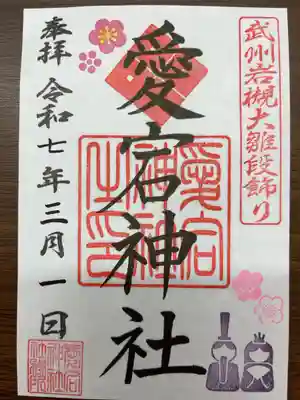 武州岩槻大雛段飾り
愛宕神社
奉拝
令和七年三月一日
愛宕
神社